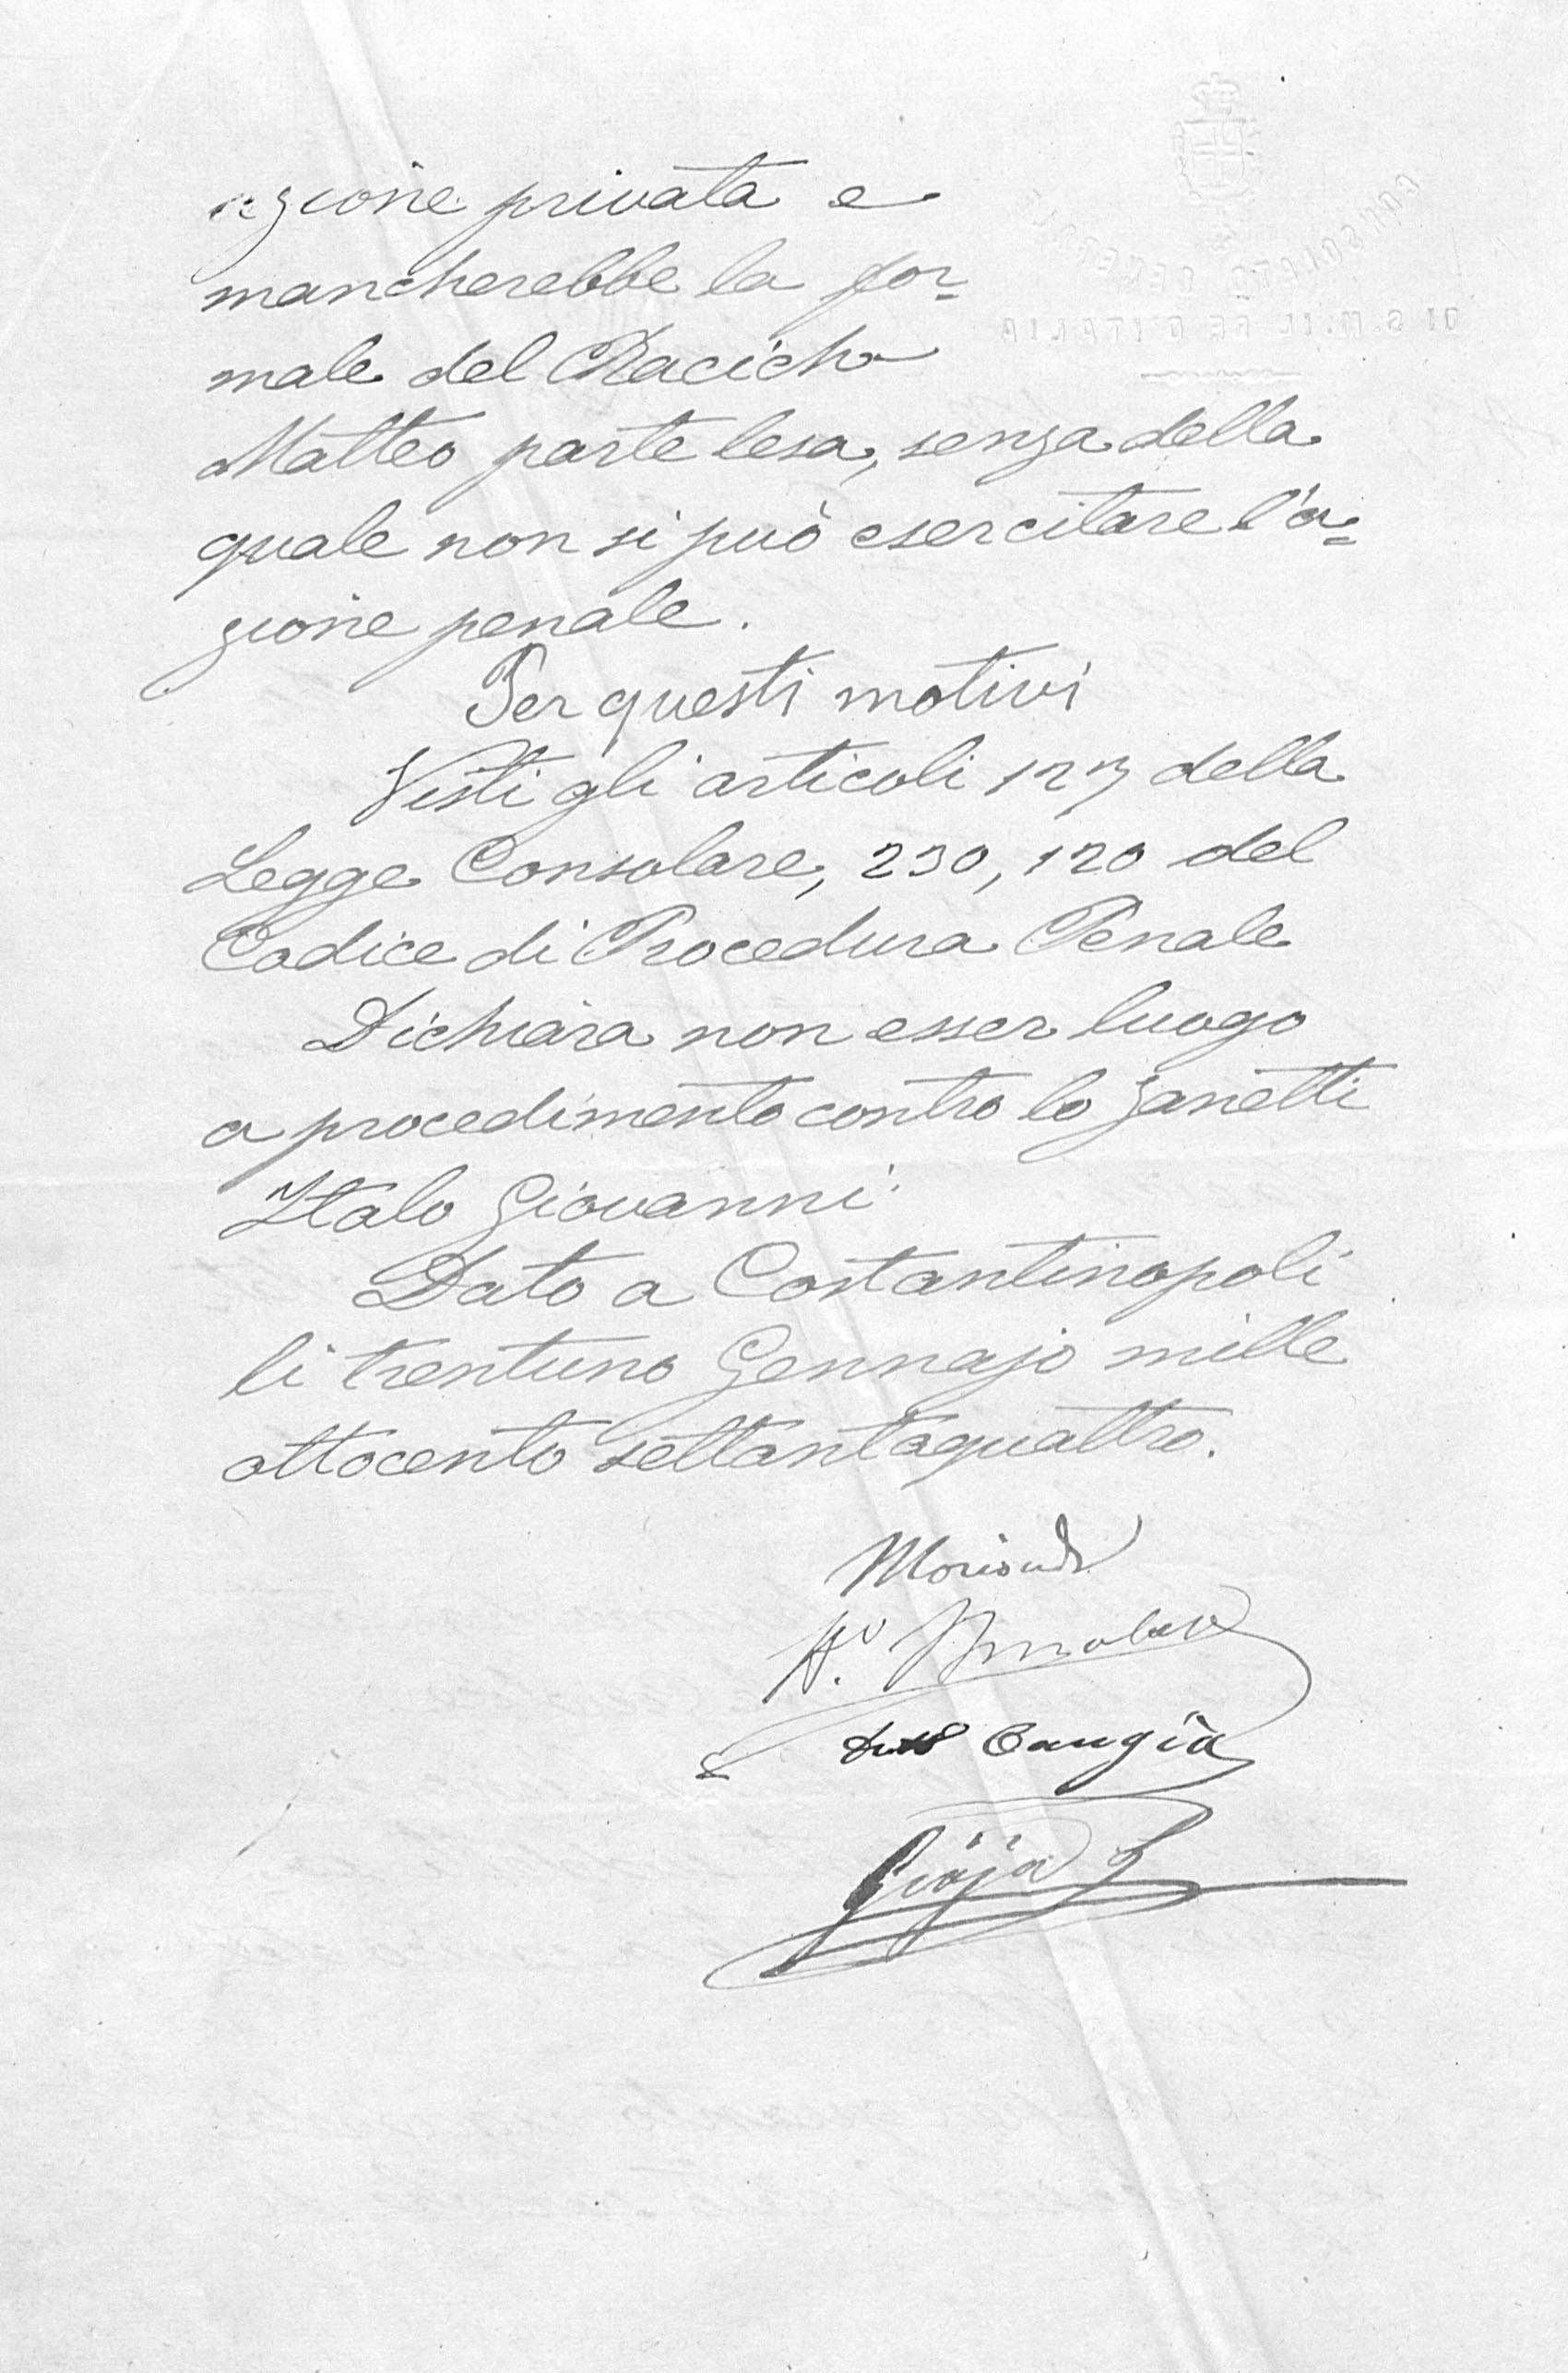 azione privata e
mancherebbe la for=
male del Racich
Matteo parte lesa, senza della
quale non si può esercitare l'a=
zione penale.
Per questi motivi
Visti gli articoli 123 della
Legge Consolare, 230, 120 del
Codice di Procedura Penale
Dichiara non esser luogo
a procedimento contro lo Zanetti
Italo Giovanni.
Dato a Costantinopoli
li trentuno Gennajo mille
ottocento settantaquattro.
Cangià
Gioja
CONSOLATO GENERALE
DI S.M. IL RE D'ITALIA